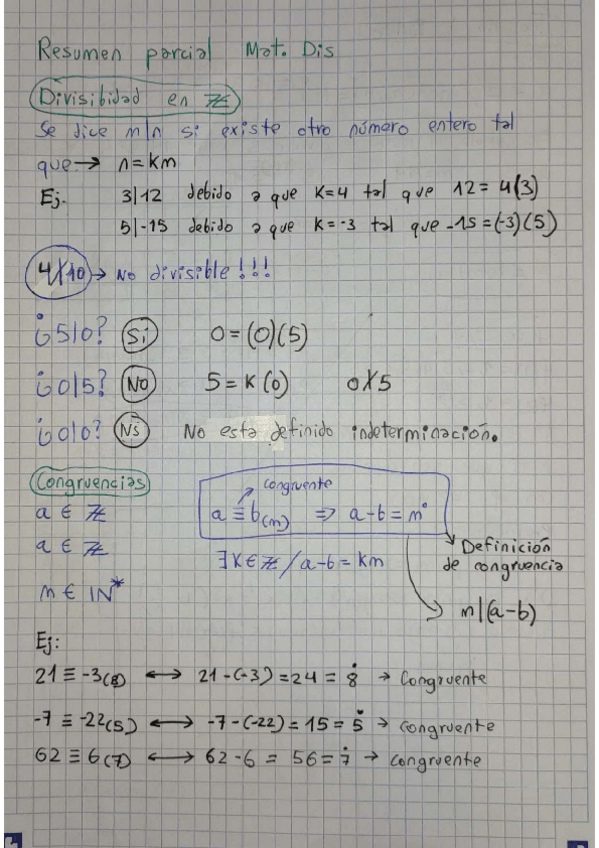 Resumen parcial Mat. Dis
Divisibidad en ℤ
Se dice m|n si existe otro número entero tal
que → n=km
Ej. 3|12 debido a que K=4 tal que 12=4(3)
5|-15 debido a que K=-3 tal que -15=(-3)(5)
4∤10 → No divisible!!!
¿5|0? Si 0=(0)(5)
¿0|5? No 5=K(0) 0∤5
¿0|0? No esta definido indeterminación.
Congruencias
congruente
a ∈ ℤ a ≡ b(m) ⇒ a-b = m°
a ∈ ℤ ∃K∈ℤ/a-b=km
Definición
de congruencia
m ∈ ℕ* m|(a-b)
Ej:
21 ≡ -3(8) ↔ 21-(-3)=24=8̇ → Congruente
-7 ≡ -22(5) ↔ -7-(-22)=15=5̇ → congruente
62 ≡ 6(7) ↔ 62-6=56=7̇ → congruente